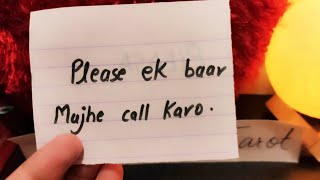 Please ek baar
Mujhe call Karo.
Tarot